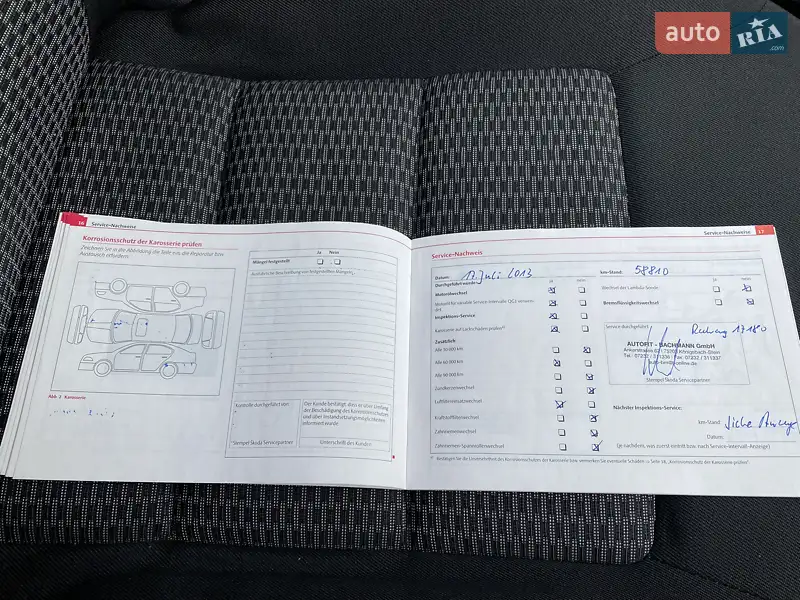 auto RIA.com
16 Service-Nachweise
Korrosionsschutz der Karosserie prüfen
Zeichnen Sie in die Abbildung die Teile ein, die Reparatur bzw.
Austausch erfordern.
Ja Nein
Mängel festgestellt
Ausführliche Beschreibung von festgestellten Mängeln:
Abb. 2 Karosserie
Kontrolle durchgeführt von:
Stempel Škoda Servicepartner
Der Kunde bestätigt, dass er über Umfang
der Beschädigung des Korrosionsschutzes
und über Instandsetzungsmöglichkeiten
informiert wurde
Unterschrift des Kunden
Service-Nachweise 17
Service-Nachweis
Datum: 17. Juli 2013
km-Stand: 58810
Durchgeführt wurde:
ja nein
Motorölwechsel
Motoröl für variable Service-Intervalle QG1 verwendet
Inspektions-Service
Karosserie auf Lackschäden prüfen
Zusätzlich:
Alle 30 000 km
Alle 60 000 km
Alle 90 000 km
Zündkerzenwechsel
Luftfiltereinsatzwechsel
Kraftstofffilterwechsel
Zahnriemenwechsel
Zahnriemen-Spannrollenwechsel
ja nein
Wechsel der Lambda-Sonde
Bremsflüssigkeitswechsel
Service durchgeführt:
Rechnung 17180
AUTOFIT - BACHMANN GmbH
Stempel Škoda Servicepartner
Nächster Inspektions-Service:
km-Stand
Siehe Anzeige
Datum:
(je nachdem, was zuerst eintritt bzw. nach Service-Intervall-Anzeige)